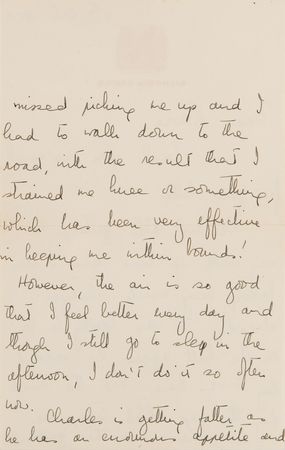 missed picking me up and I
had to walk down to the
road, with the result that I
strained me knee or something,
which has been very effective
in keeping me within bounds!
However, the air is so good
that I feel better every day and
though I still go to sleep in the
afternoon, I don't do it so often
now.
Charles is getting fatter as
he has an enormous appetite and